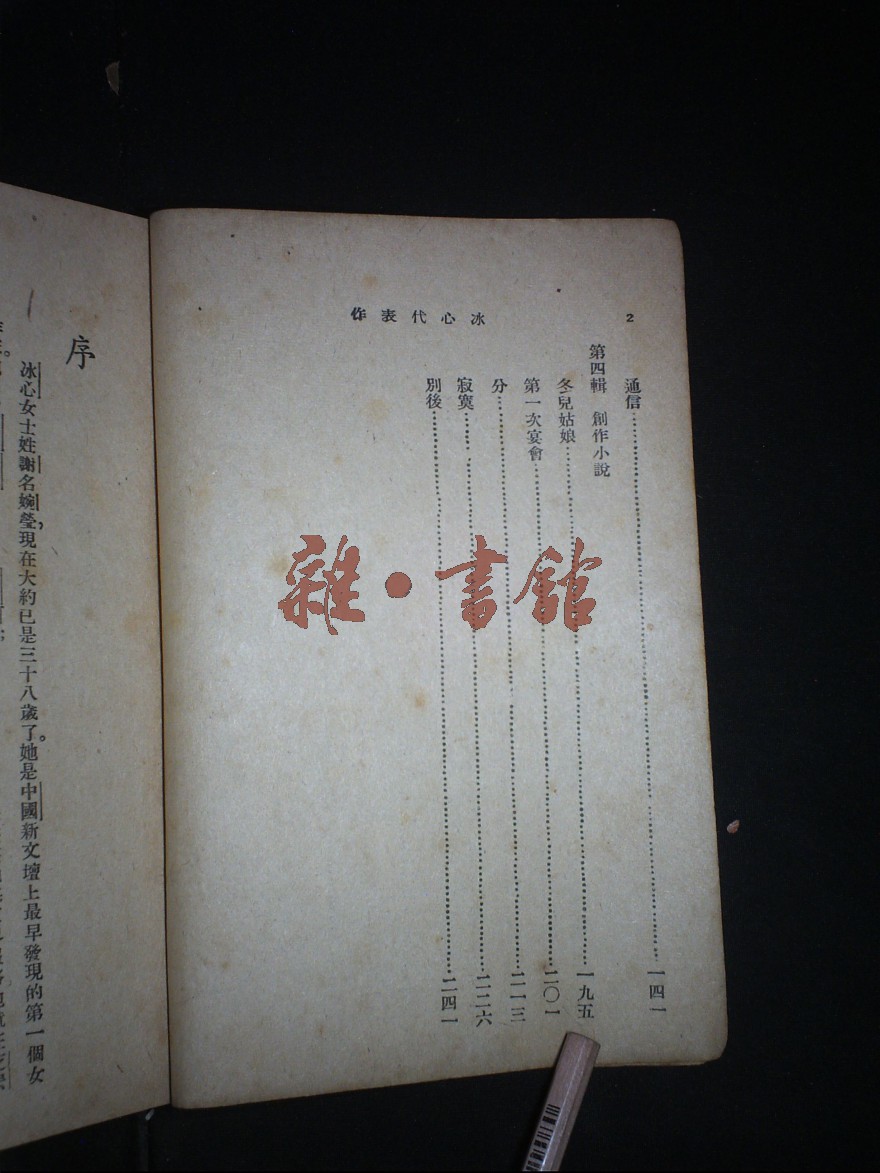 2
冰心代表作
通信……一四一
第四輯 創作小說
冬兒姑娘……一九五
第一次宴會……二〇一
分……二一三
寂寞……二二六
別後……二四一
雜·書館
序
冰心女士姓謝名婉瑩，現在大約已是三十八歲了。她是中國新文壇上最早發現的第一個女